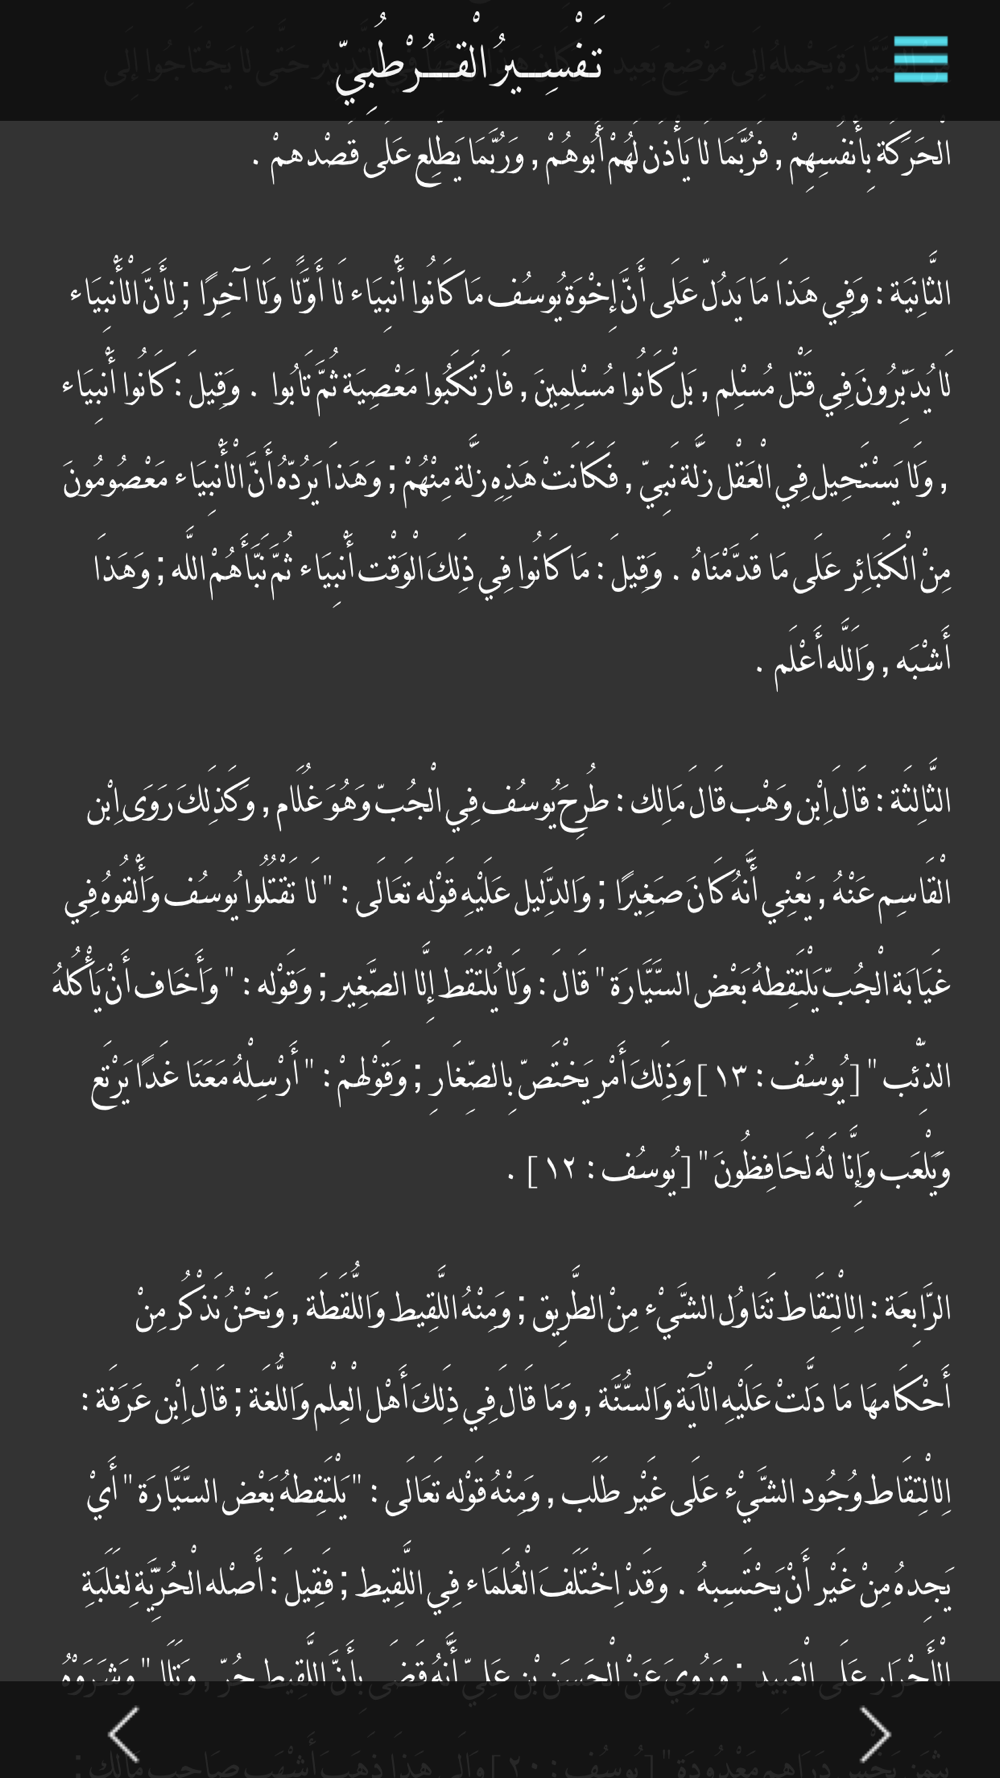 تَفْسِيرُ الْقُرْطُبِيّ
الْحَرَكَة بِأَنْفُسِهِمْ , فَرُبَّمَا لَا يَأْذَن لَهُمْ أَبُوهُمْ , وَرُبَّمَا يَطَّلِع عَلَى قَصْدهمْ .
الثَّانِيَة : وَفِي هَذَا مَا يَدُلّ عَلَى أَنَّ إِخْوَة يُوسُف مَا كَانُوا أَنْبِيَاء لَا أَوَّلًا وَلَا آخِرًا ; لِأَنَّ الْأَنْبِيَاء
لَا يُدَبِّرُونَ فِي قَتْل مُسْلِم , بَلْ كَانُوا مُسْلِمِينَ , فَارْتَكَبُوا مَعْصِيَة ثُمَّ تَابُوا . وَقِيلَ : كَانُوا أَنْبِيَاء
, وَلَا يَسْتَحِيل فِي الْعَقْل زَلَّة نَبِيّ , فَكَانَتْ هَذِهِ زَلَّة مِنْهُمْ ; وَهَذَا يَرُدّهُ أَنَّ الْأَنْبِيَاء مَعْصُومُونَ
مِنْ الْكَبَائِر عَلَى مَا قَدَّمْنَاهُ . وَقِيلَ : مَا كَانُوا فِي ذَلِكَ الْوَقْت أَنْبِيَاء ثُمَّ نَبَّأَهُمْ اللَّه ; وَهَذَا
أَشْبَه , وَاَللَّه أَعْلَم .
الثَّالِثَة : قَالَ اِبْن وَهْب قَالَ مَالِك : طُرِحَ يُوسُف فِي الْجُبّ وَهُوَ غُلَام , وَكَذَلِكَ رَوَى اِبْن
الْقَاسِم عَنْهُ , يَعْنِي أَنَّهُ كَانَ صَغِيرًا ; وَالدَّلِيل عَلَيْهِ قَوْله تَعَالَى : " لَا تَقْتُلُوا يُوسُف وَأَلْقُوهُ فِي
غَيَابَة الْجُبّ يَلْتَقِطهُ بَعْض السَّيَّارَة " قَالَ : وَلَا يُلْتَقَط إِلَّا الصَّغِير ; وَقَوْله : " وَأَخَاف أَنْ يَأْكُلهُ
الذِّئْب " [ يُوسُف : ١٣ ] وَذَلِكَ أَمْر يَخْتَصّ بِالصِّغَارِ ; وَقَوْلهمْ : " أَرْسِلْهُ مَعَنَا غَدًا يَرْتَع
وَيَلْعَب وَإِنَّا لَهُ لَحَافِظُونَ " [ يُوسُف : ١٢ ] .
الرَّابِعَة : اِلالْتِقَاط تَنَاوُل الشَّيْء مِنْ الطَّرِيق ; وَمِنْهُ اللَّقِيط وَاللُّقَطَة , وَنَحْنُ نَذْكُر مِنْ
أَحْكَامهَا مَا دَلَّتْ عَلَيْهِ الْآيَة وَالسُّنَّة , وَمَا قَالَ فِي ذَلِكَ أَهْل الْعِلْم وَاللُّغَة ; قَالَ اِبْن عَرَفَة :
اِلالْتِقَاط وُجُود الشَّيْء عَلَى غَيْر طَلَب , وَمِنْهُ قَوْله تَعَالَى : " يَلْتَقِطهُ بَعْض السَّيَّارَة " أَيْ
يَجِدهُ مِنْ غَيْر أَنْ يَحْتَسِبهُ . وَقَدْ اِخْتَلَفَ الْعُلَمَاء فِي اللَّقِيط ; فَقِيلَ : أَصْله الْحُرِّيَّة لِغَلَبَةِ
الْأَحْرَار عَلَى الْعَبِيد ; وَرُوِيَ عَنْ الْحَسَن بْن عَلِيّ أَنَّهُ قَضَى بِأَنَّ اللَّقِيط حُرّ , وَتَلَا " وَشَرَوْهُ
بِثَمَنٍ بَخْس دَرَاهِم مَعْدُودَة " [ يُوسُف : ٢٠ ] وَإِلَى هَذَا ذَهَبَ أَشْهَب صَاحِب مَالِك ;